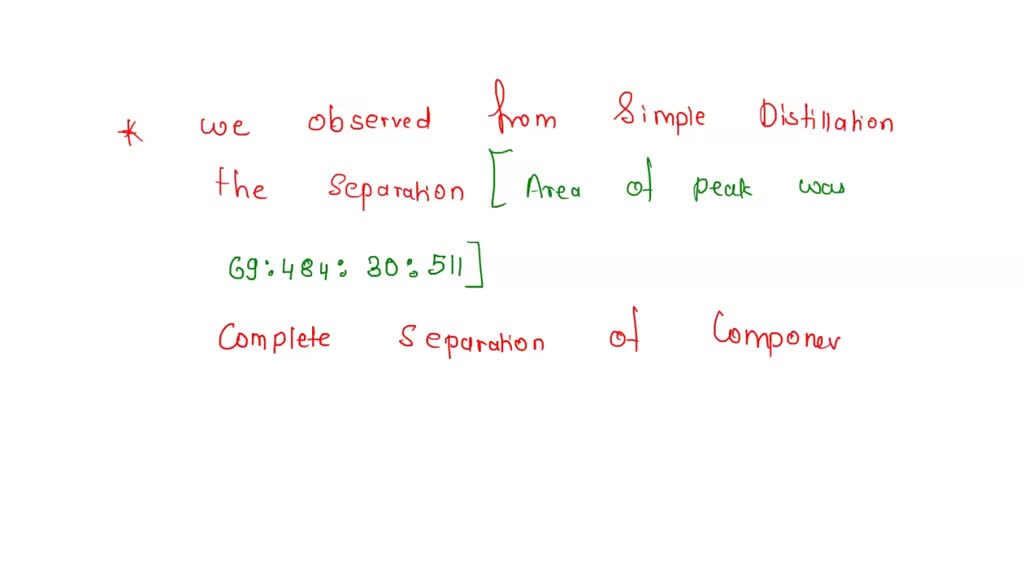 * we observed from Simple Distillation
the Separation [Area of peak was
69:484: 30:511]
Complete Separation of Componer